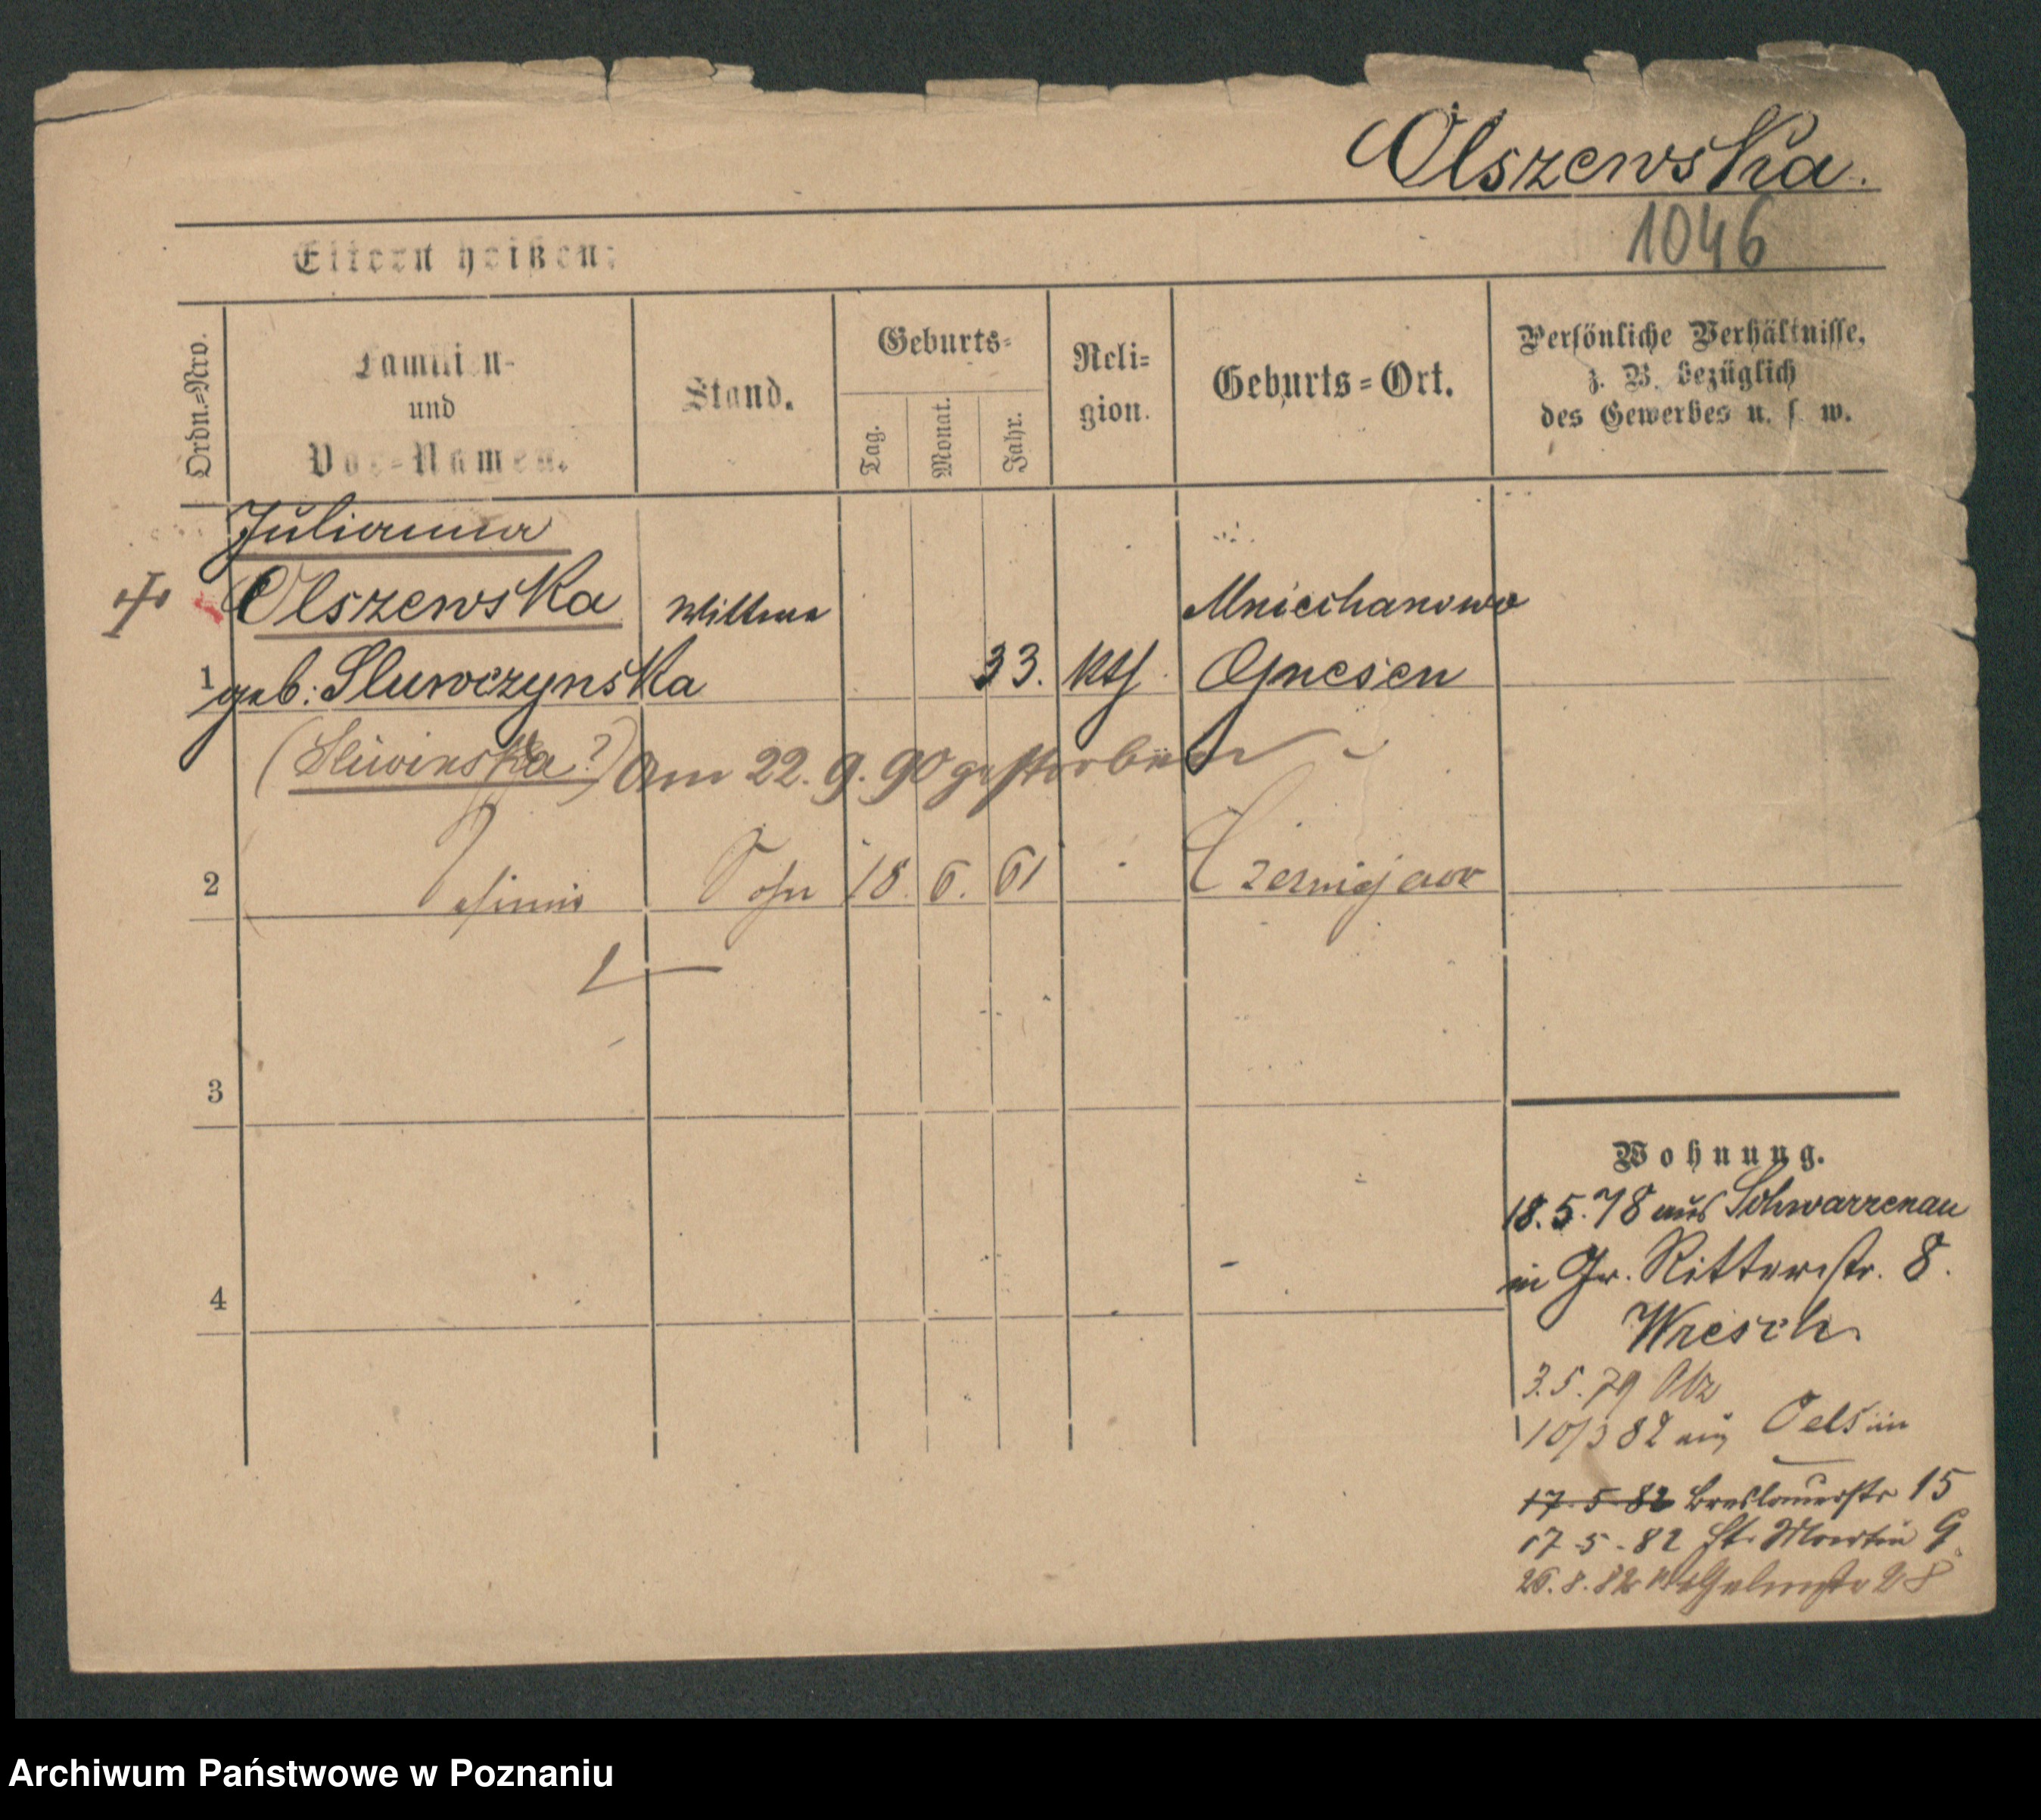 Olszewska.
1046
Eltern heißen:
Ordn.=Nro.
Familien-
und
Vor=Namen.
Stand.
Geburts=
Tag.
Monat.
Jahr.
Reli=
gion.
Geburts=Ort.
Persönliche Verhältnisse,
z. B. bezüglich
des Gewerbes u. s. w.
Julianna
Olszewska Wittwe Mniechanowo
1 geb: Sluwczynska 33. kth. Gnesen
(Sliwinska?) Am 22. 9. 90 gestorben
2 Sohn 18. 6. 61 Czerniejewo
3
4
Wohnung.
18. 5. 78 aus Schwarzenau
in Gr. Ritterstr. 8.
Wresch.
3. 5. 79
10/3 82 aus Oels in
17. 5. 82 Breslauerstr 15
17-5-82 St. Martin 9.
26. 8. 82 28
Archiwum Państwowe w Poznaniu